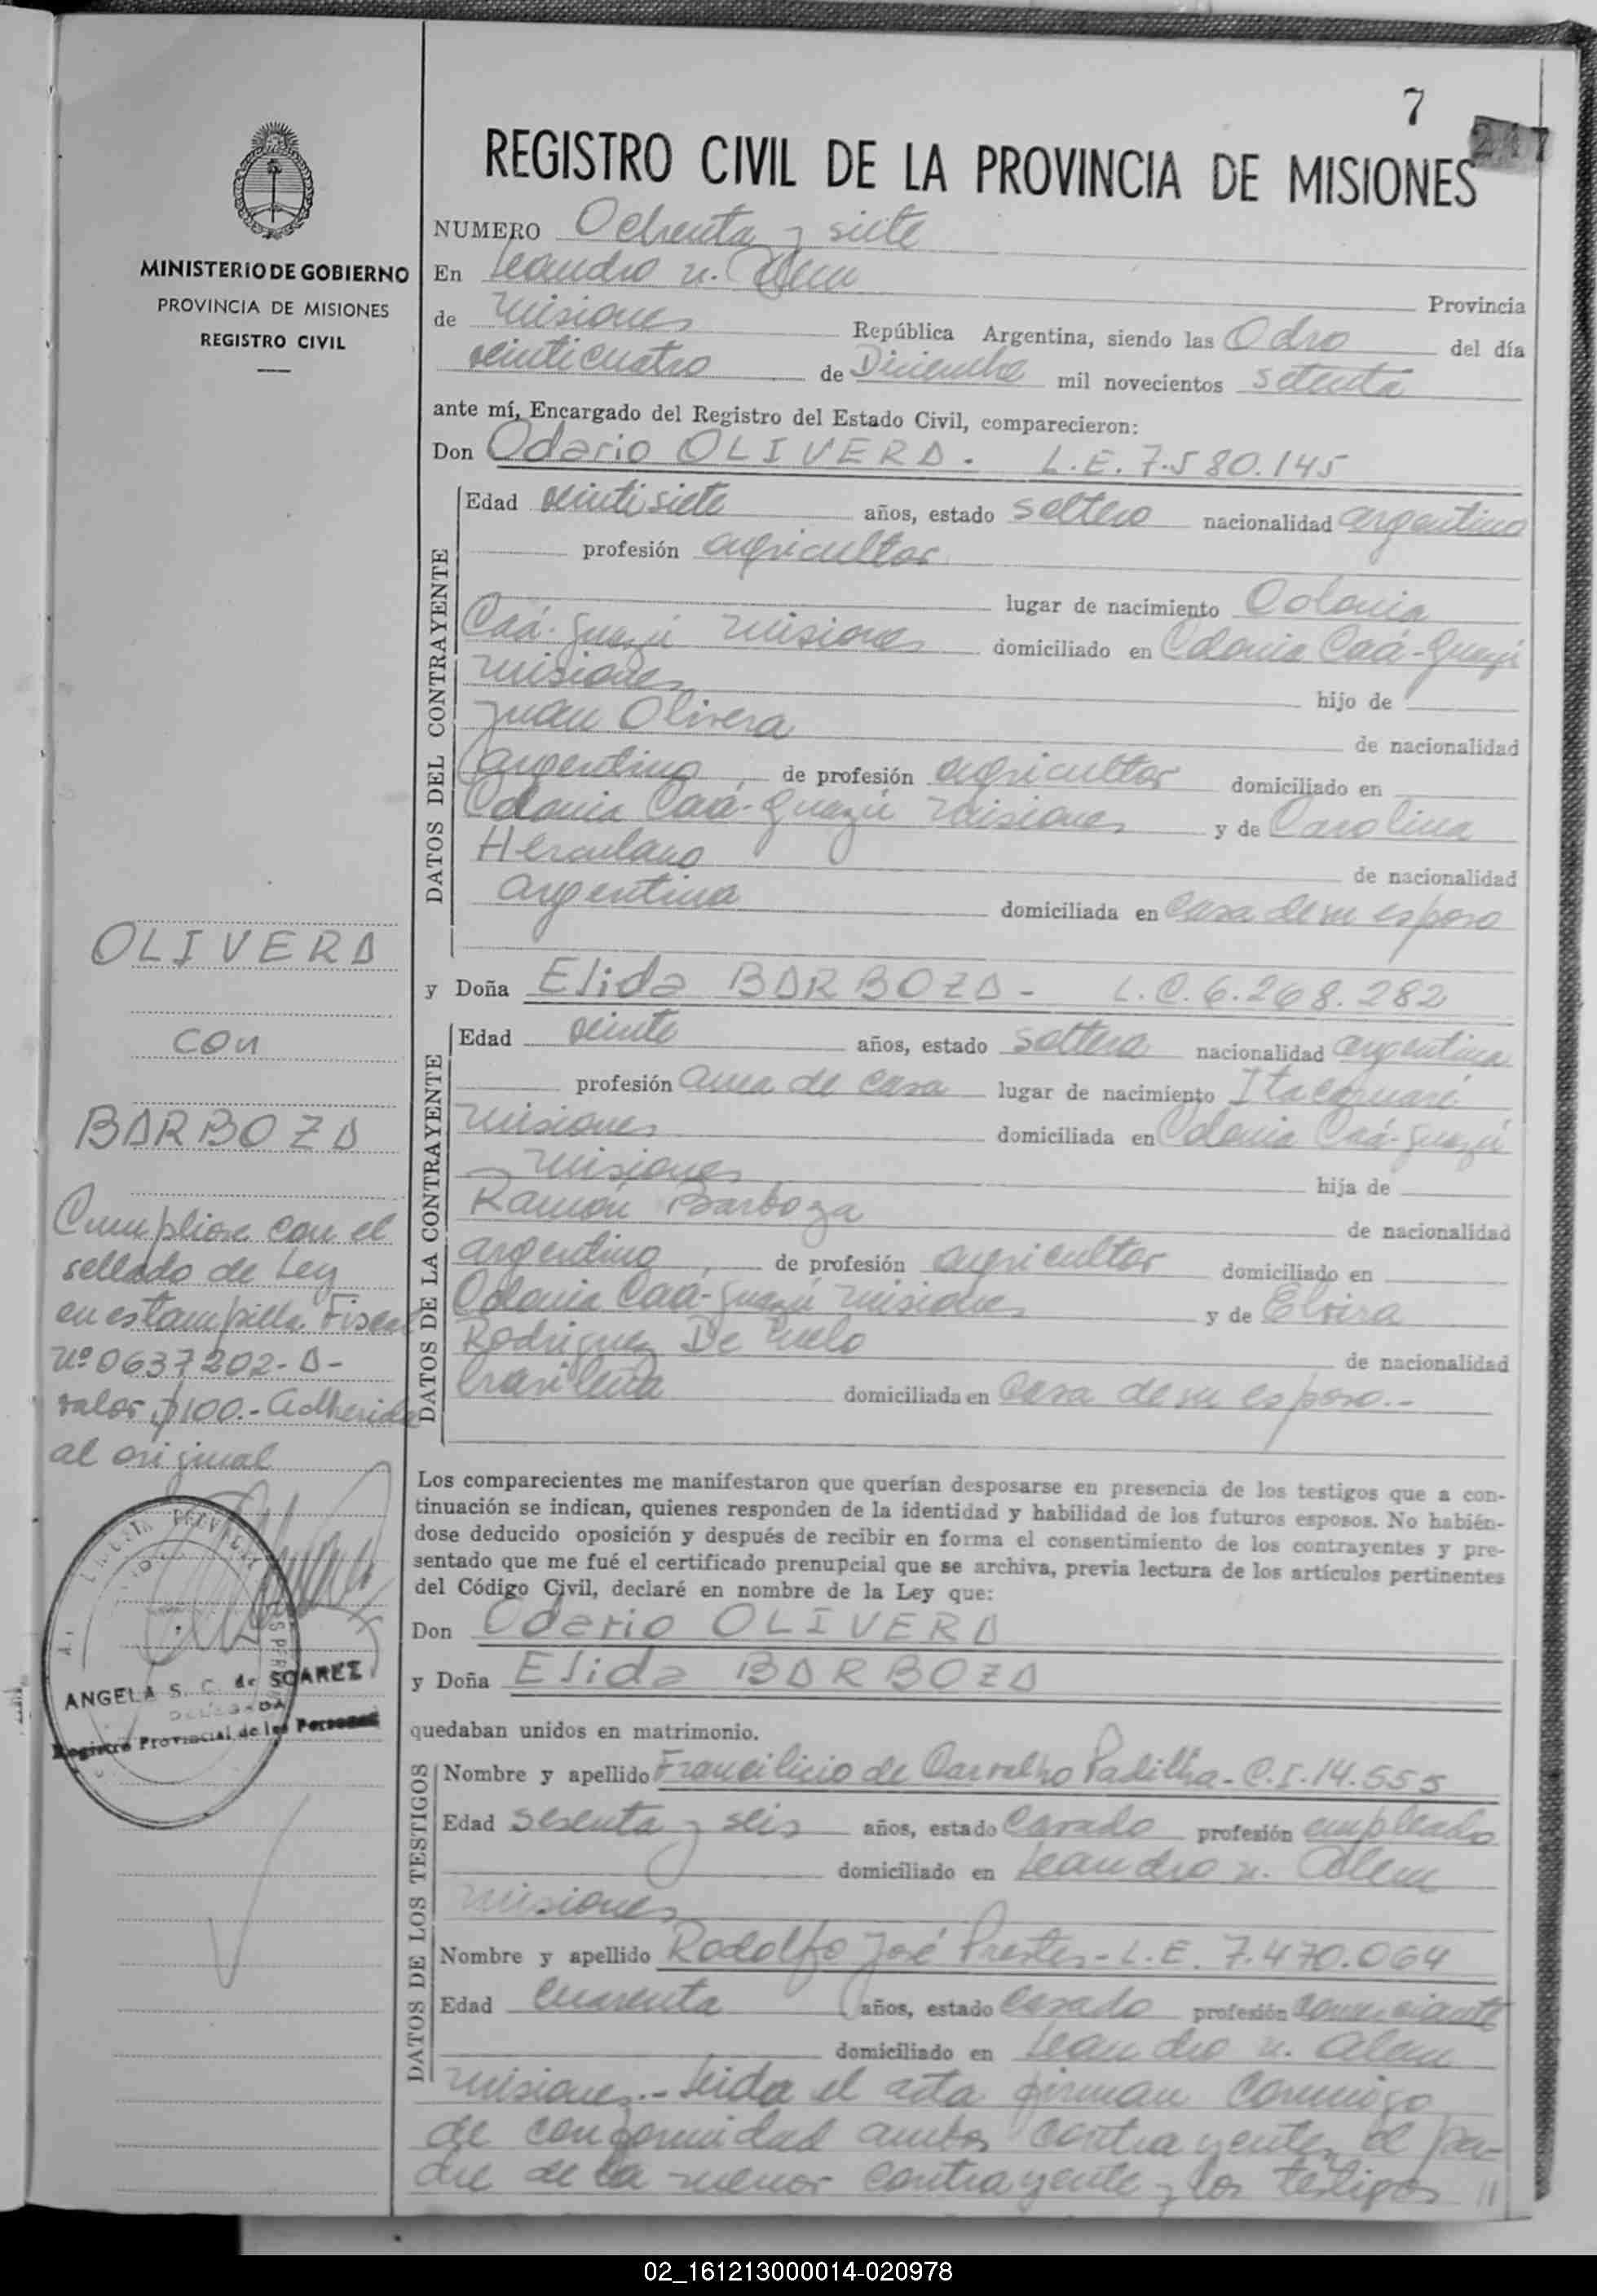 7
247
REGISTRO CIVIL DE LA PROVINCIA DE MISIONES
MINISTERIO DE GOBIERNO
PROVINCIA DE MISIONES
REGISTRO CIVIL
NUMERO Ochenta y siete
En Leandro n. Alem Provincia
de Misiones República Argentina, siendo las Ocho del día
veinticuatro de Diciembre mil novecientos setenta
ante mí, Encargado del Registro del Estado Civil, comparecieron:
Don Odario OLIVERA. L.E. 7.580.145
DATOS DEL CONTRAYENTE
Edad veintisiete años, estado soltero nacionalidad argentino
profesión agricultor
lugar de nacimiento Colonia
Caá-Guazú Misiones domiciliado en Colonia Caá-Guazú
Misiones hijo de
Juan Olivera de nacionalidad
argentino, de profesión agricultor domiciliado en
Colonia Caá-Guazú Misiones y de Carolina
Herculano de nacionalidad
argentina domiciliada en Casa de su esposo
y Doña Elida BARBOZA - L.C. 6.268.282
DATOS DE LA CONTRAYENTE
Edad veinte años, estado soltera nacionalidad argentina
profesión ama de casa lugar de nacimiento Itacaruaré
Misiones domiciliada en Colonia Caá-Guazú
Misiones hija de
Ramón Barboza de nacionalidad
argentino, de profesión agricultor domiciliado en
Colonia Caá-Guazú Misiones y de Elvira
Rodriguez De Melo de nacionalidad
brasileña domiciliada en Casa de su esposo.-
Los comparecientes me manifestaron que querían desposarse en presencia de los testigos que a con-
tinuación se indican, quienes responden de la identidad y habilidad de los futuros esposos. No habién-
dose deducido oposición y después de recibir en forma el consentimiento de los contrayentes y pre-
sentado que me fué el certificado prenupcial que se archiva, previa lectura de los artículos pertinentes
del Código Civil, declaré en nombre de la Ley que:
Don Odario OLIVERA
y Doña Elida BARBOZA
quedaban unidos en matrimonio.
DATOS DE LOS TESTIGOS
Nombre y apellido Francilicio de Carvalho Padilha - C.I. 14.555
Edad sesenta y seis años, estado Casado profesión empleado
domiciliado en Leandro n. Alem
Misiones
Nombre y apellido Rodolfo José Prestes - L.E. 7.470.064
Edad Cuarenta años, estado Casado profesión comerciante
domiciliado en Leandro n. Alem
Misiones.- Leida el acta firman conmigo
de conformidad ambos contrayentes, el pa-
dre de la menor contrayente y los testigos //
OLIVERA
con
BARBOZA
Cumpliose con el
sellado de Ley
en estampilla Fiscal
Nº 0637202-A-
valor $100.- adherida
al original
ANGELA S. C. de SOAREZ
DELEGADA
Registro Provincial de las Personas
02_161213000014-020978